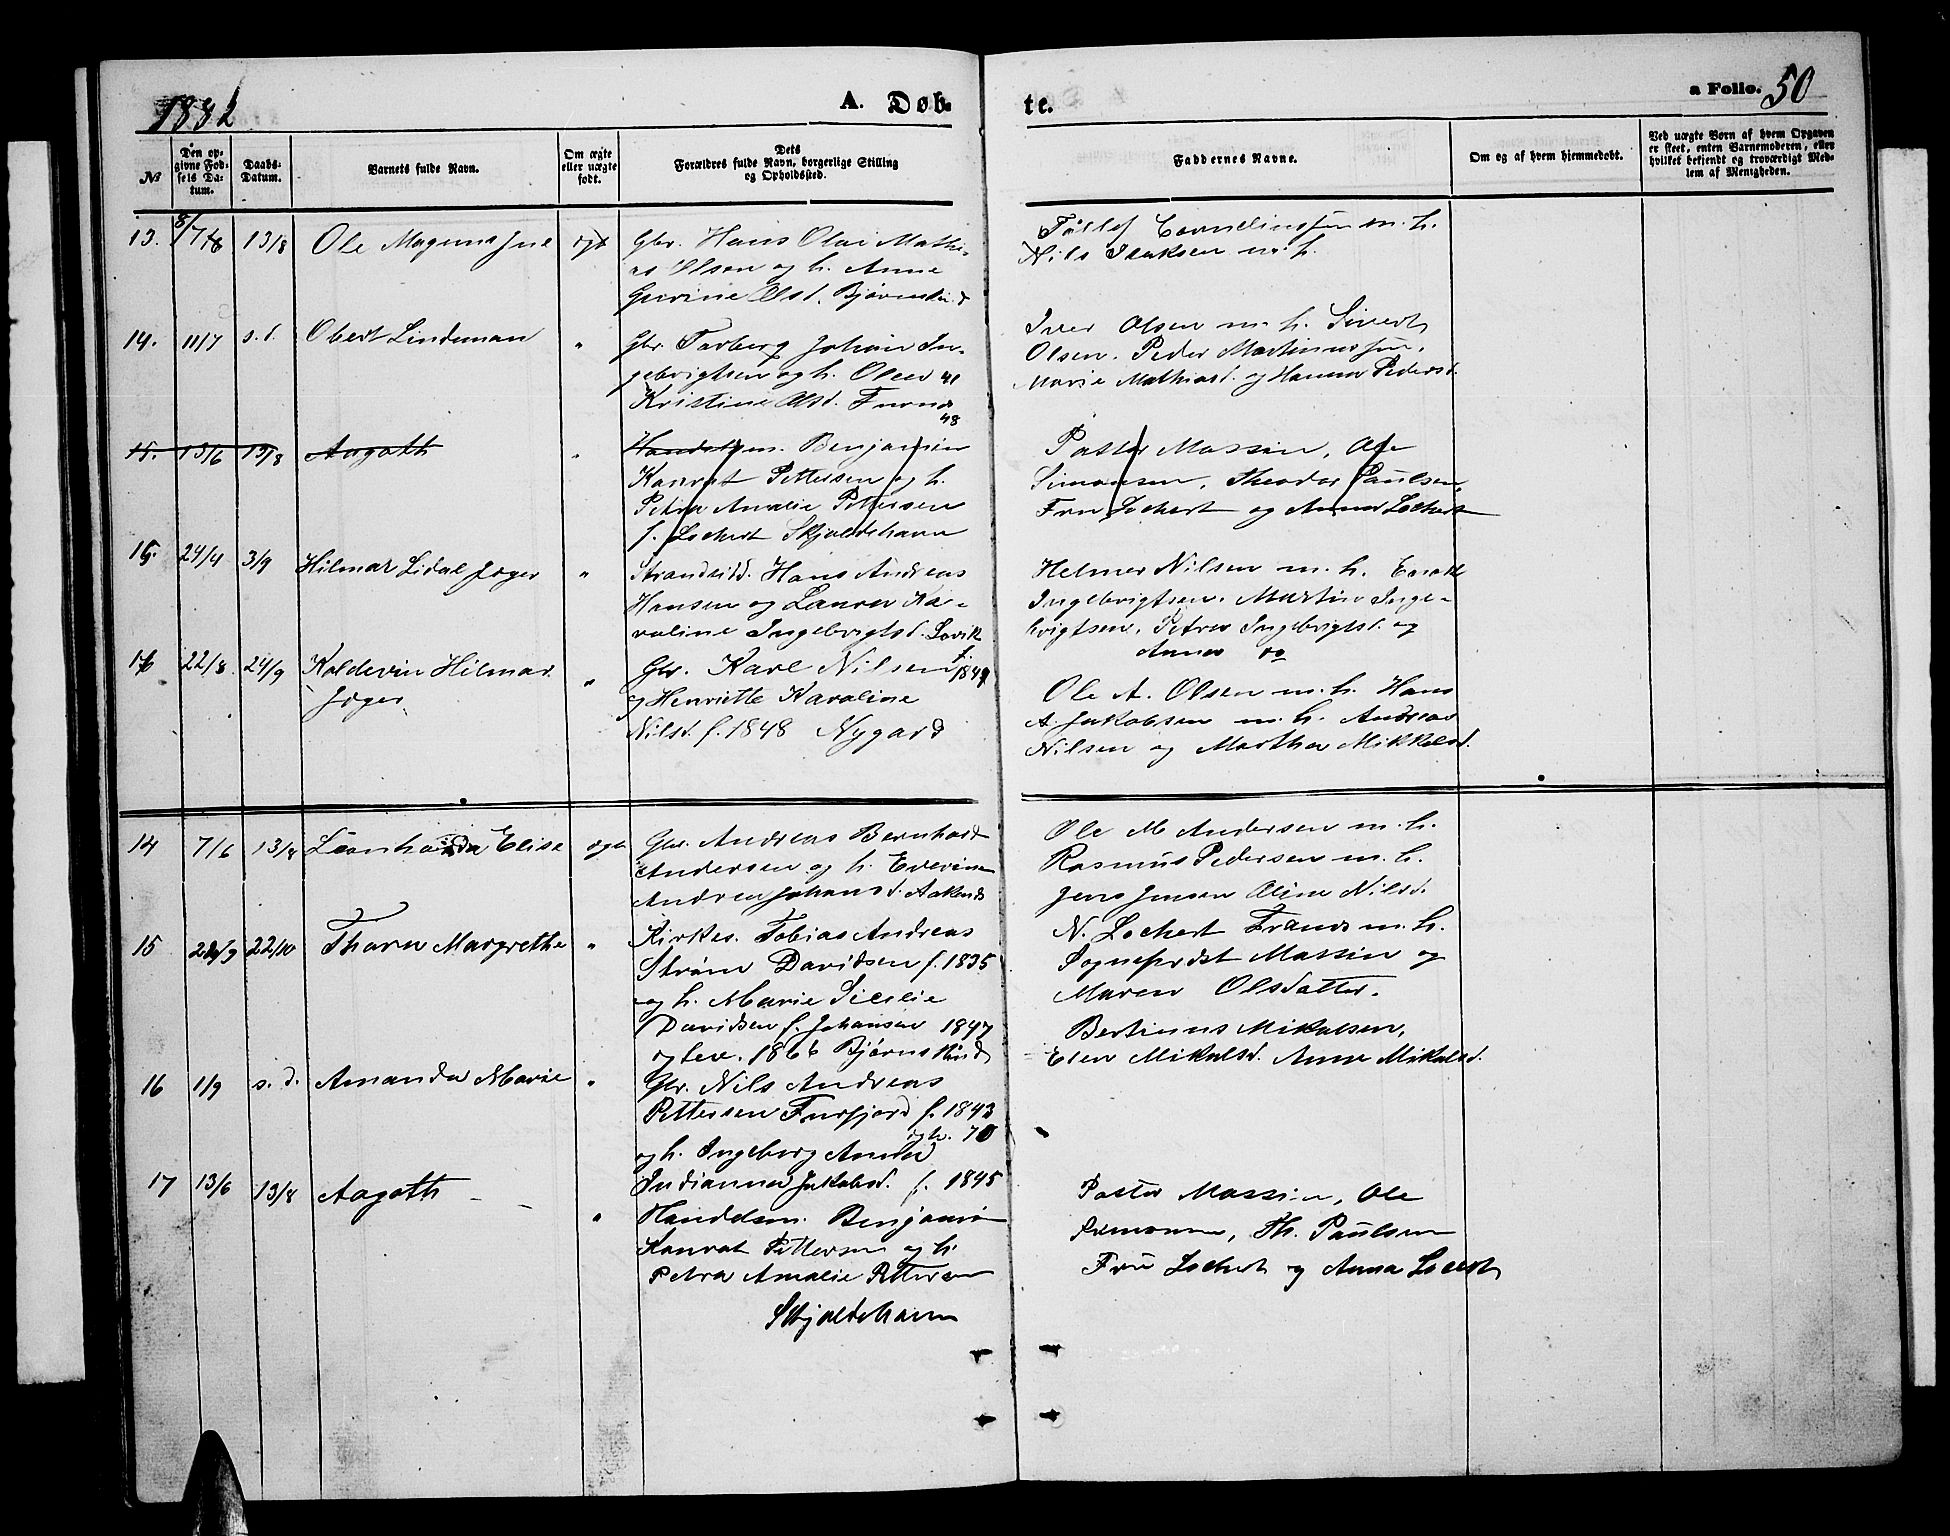 1882
A. Døb-
te.
a Folio. 50
№
Den op-
givne Fød-
sels Da-
tum.
Daabs-
Datum.
Barnets fulde Navn.
Om ægte
eller uægte
født.
Dets
Forældres fulde Navn, borgerlige Stilling
og Opholdssted.
Faddernes Navne.
Om og af hvem hjemmedøbt.
Ved uægte Børn af hvem Opgaven
er skeet, enten Barnemoderen, eller
hvilket bekjendt og troværdigt Med-
lem af Menigheden.
13. 13/8 Ole Magnus
Gbr. Hans Olai Mathi-
as Olsen og h. Anne
Olsd.
m. h.
Nils Isaksen m. h.
14. 11/7 s. d. Obert Lindeman "
Gbr. Torberg Johan In-
gebrigtsen og h. Olea 41
Kristine Olsd.
48
Iver Olsen m. h. Sivert
Olsen. Peder Martinussen.
Marie Mathiasd. og Hanna Pedersd.
15. 13/6 13/8 Aagoth "
Handelsm. Benjamin
Konrat Pettersen og h.
Petra Amalie Pettersen
f. Lochert Skjoldehavn
Pastor Massin, Ole
Simonsen, Theodor Paulsen,
Fru Lochert og Anna Lochert
15. 24/4 3/9 Hilmar Lidal Jæger "
Strandsidd. Hans Andreas
Hansen og Laura Ka-
roline Ingebrigtsd. Lovik
Helmer Nilsen m. h. Enok
Ingebrigtsen. Martin Inge-
brigtsen. Petra Ingebrigtsd. og
Anna do
16 22/8. 24/9 Koldevin Hilmar
Jæger. "
Gbr. Karl Nilsen f. 1849
og Henriette Karoline
Nilsd. f. 1848 Nygard
Ole A. Olsen m. h. Hans
A. Jakobsen m. h. Andreas
Nilsen og Martha Mikkelsd.
14 7/6 13/8 Leonharda Elise ægte
Gbr. Andreas Bernhard
Andersen og h. Everine
Andrea Johansd.
Ole M Andersen m. h.
Rasmus Pedersen m. h.
Jens Jensen Oline Nilsd.
15 22/10 Thora Margrethe "
Kirkes. Tobias Andreas
Strøm Davidsen f. 1835
og h. Marie Sicilie
Davidsen f. Johansen 1847
1866 Bjørnskind
N. Lochert m. h.
Sogneprest Massin og
Maren Olsdatter.
16 1/9 s. d. Amanda Marie "
Gbr. Nils Andreas
Pettersen Furfjord f. 1843
70
og h. Ingeborg Anna
Indianna Jakobsd. f. 1845
Bertinus Mikalsen,
Elen Mikalsd. Anne Mikalsd.
17 13/6 13/8 Aagoth "
Handelsm. Benjamin
Konrat Pettersen og h.
Petra Amalie Pettersen
Skjoldehavn
Pastor Massin, Ole
Simonsen, Th. Paulsen
Fru Lochert og Anna Lochert